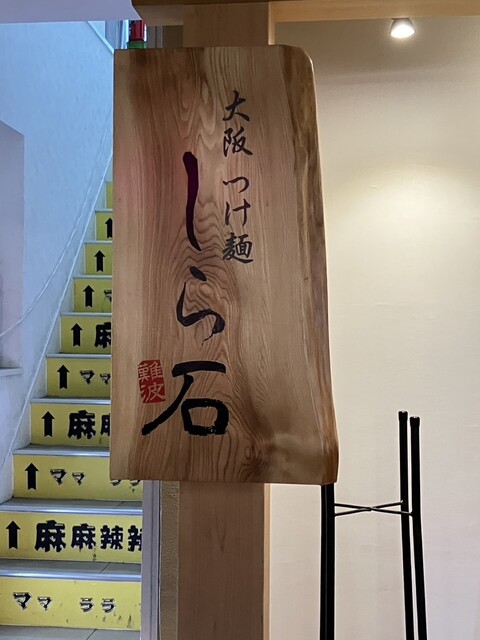 大阪つけ麺
しら石
難波
麻
ママ
麻
ママ
麻麻辣辣
ママ ララ